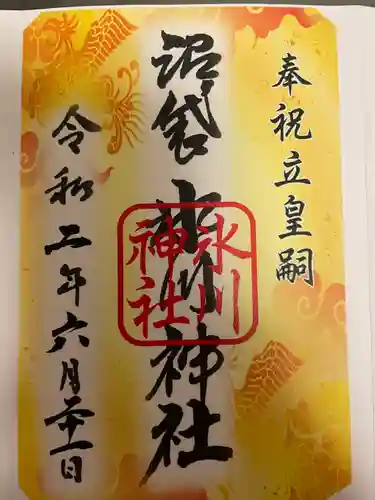 奉祝立皇嗣
沼袋氷川神社
氷川
神社
令和二年六月廿一日